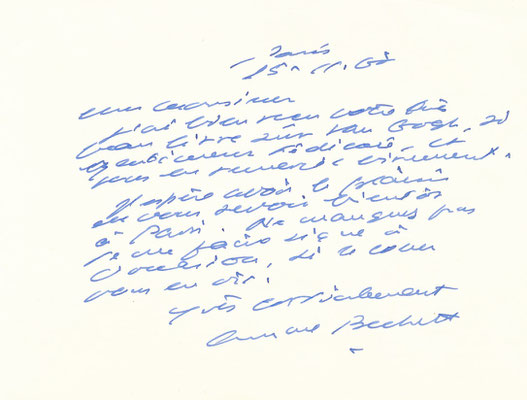 Paris
Cher Monsieur
J'ai bien reçu votre très
beau livre sur Van Gogh, si
gentiment dédicacé, et
vous en remercie vivement.
J'espère avoir le plaisir
de vous revoir bientôt
à Paris. Ne manquez pas
de me faire signe à
l'occasion, si le cœur
vous en dit.
Très cordialement
Samuel Beckett